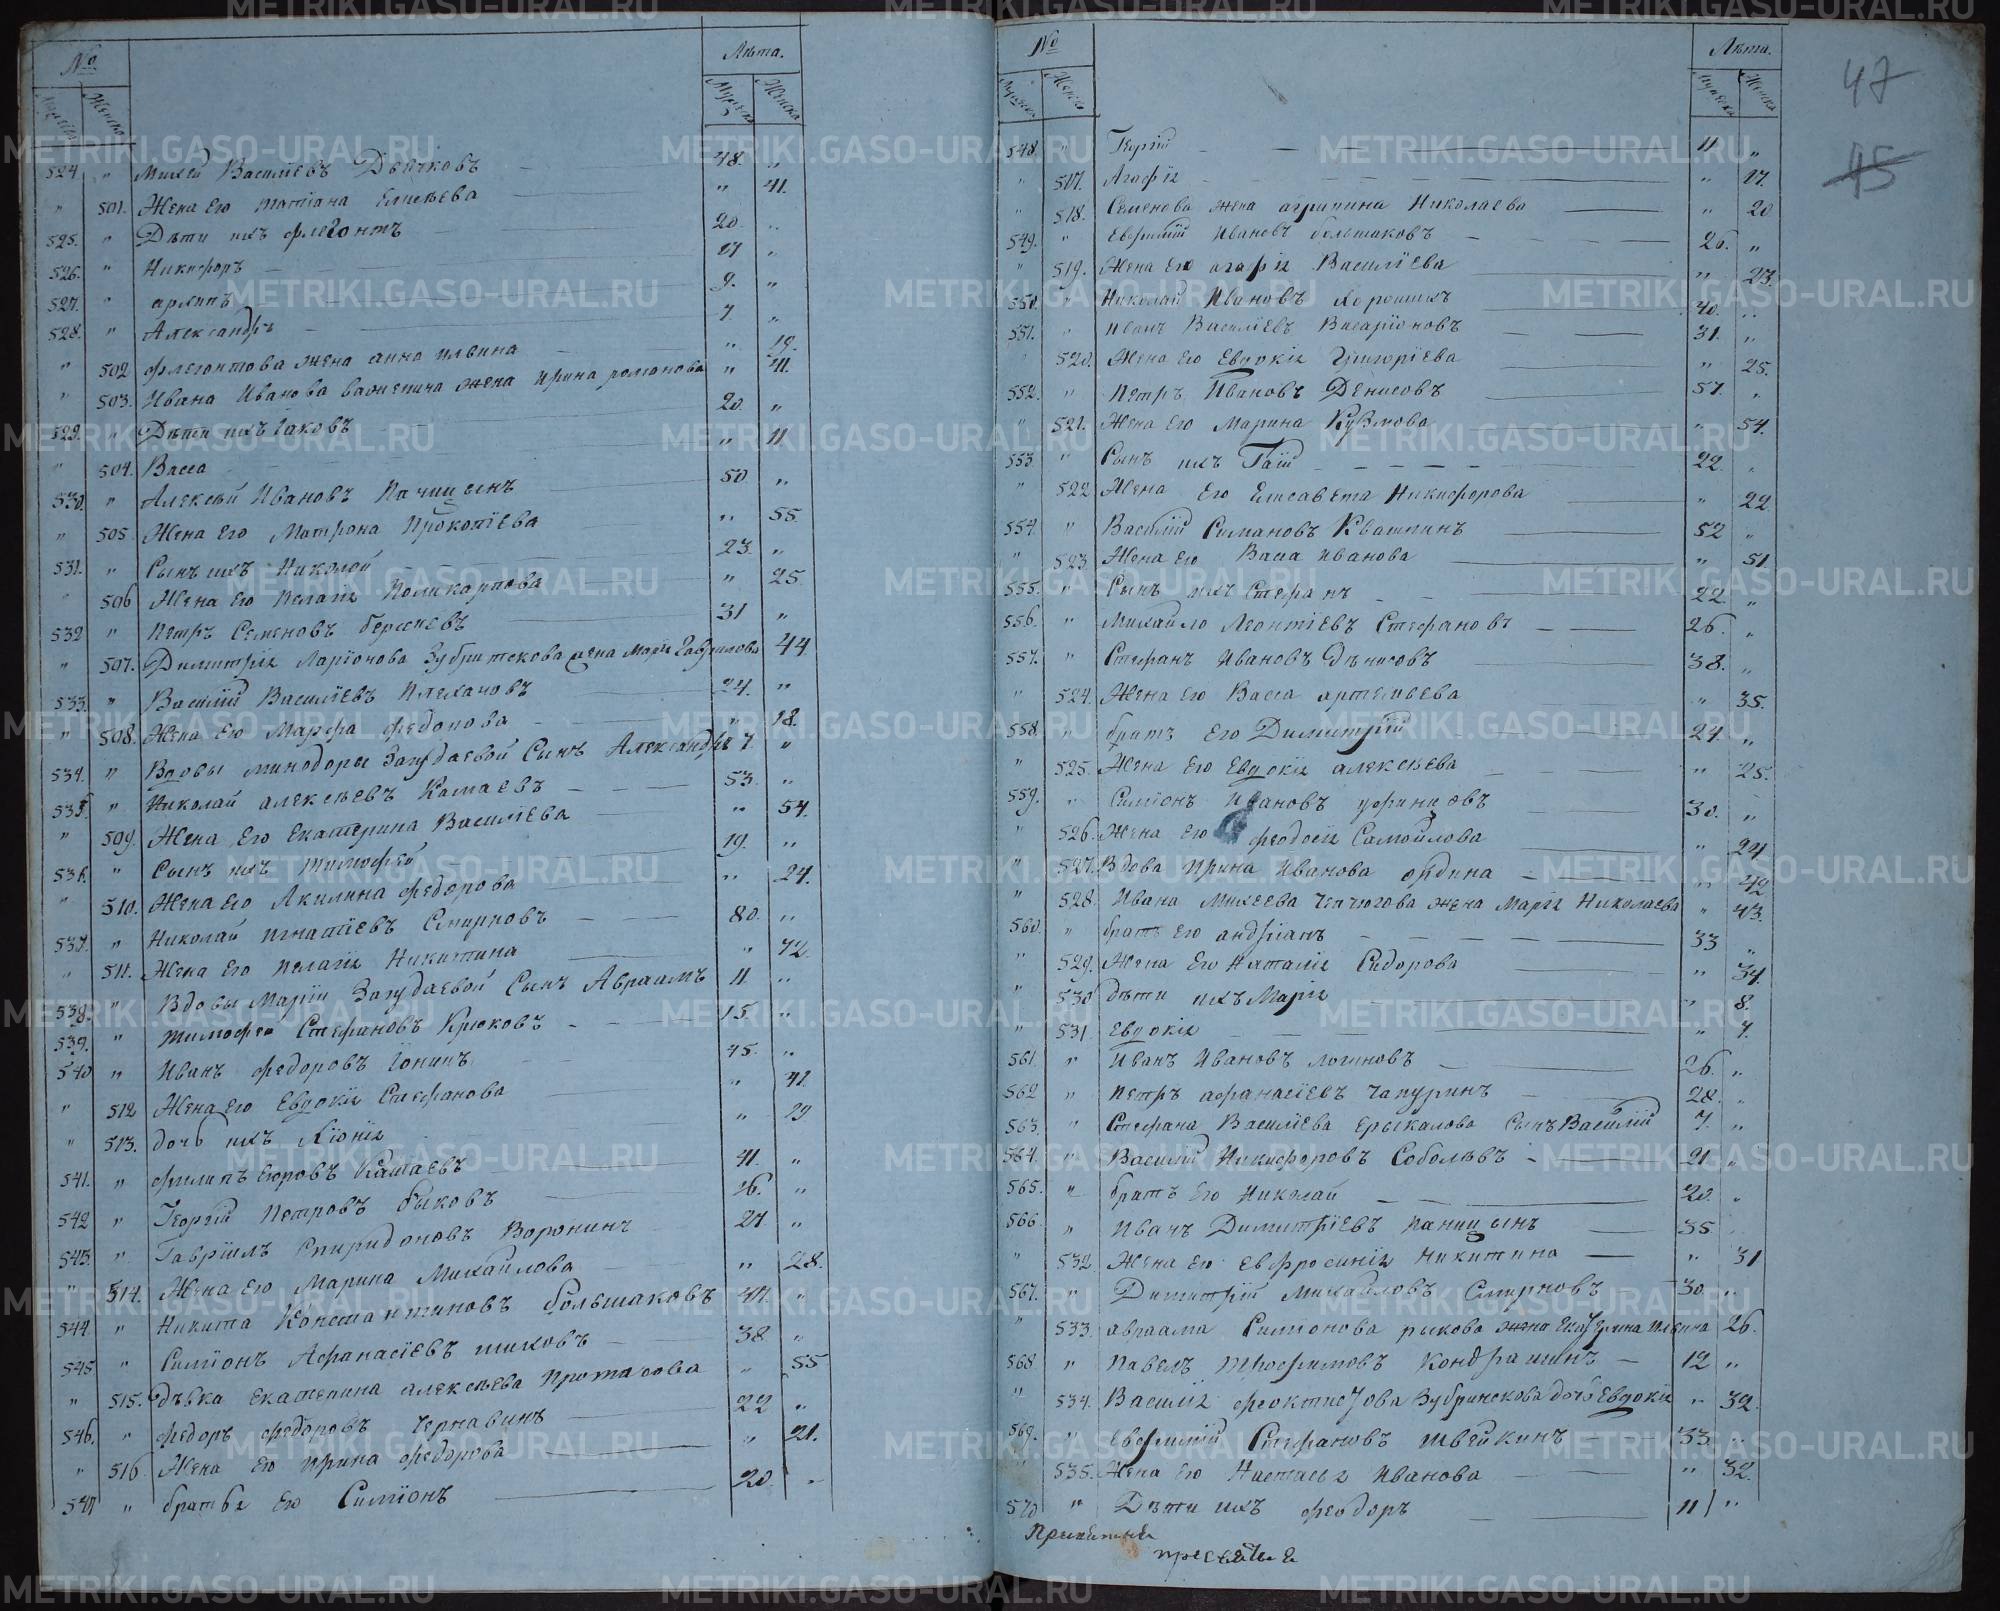 № Лѣта.
Мужеска Женска Мужеска Женска
524 „ Михей Василiевъ Дѣячковъ 48. „
„ 501. Жена его татiана Елисѣева „ 41.
525. „ Дѣти ихъ флегонтъ 20. „
526. „ Никифоръ 17 „
527. „ 9. „
528. „ Александръ 7. „
„ 502 флегонтова жена анна ильина „ 19.
„ 503. Ивана Иванова жена ирина романова „ 41.
529. „ Дѣти ихъ Iаковъ 20. „
„ 504. Васса „ 11
530. „ Алексѣй Ивановъ Паницынъ 50 „
„ 505. Жена его Матрона Прокопiева „ 55.
531. „ Сынъ ихъ Николой 23. „
„ 506 Жена его пелагiя Поликарпова „ 25.
532 „ петръ Семеновъ берсеневъ 31 „
„ 507. Димитрiя Ларiонова Зубритскова жена Марiя Гаврилова 44
533. „ Василiй Василiевъ Плехановъ 24. „
„ 508. Жена его Марфа федорова „ 18.
534. „ Вдовы минодоры Загудаевой Сынъ Александръ 7. „
535. „ Николай алексѣевъ Камаевъ 53. „
„ 509. Жена его Екатерина Василiева „ 54.
536. „ Сынъ ихъ тимофей 19. „
„ 510. Жена его Акилина федорова „ 24.
537. „ Николай игнатiевъ Смирновъ 80. „
„ 511. Жена его пелагiя Никитина „ 72.
538. „ Вдовы Марiи Загудаевой Сынъ Авраамъ 11 „
539. „ тимофей Стефановъ Крюковъ 15. „
540 „ Иванъ федоровъ Iонинъ 45. „
„ 512 Жена его Евдокiя Стефанова „ 41.
„ 513. дочь ихъ „ 19
541. „ филипъ егоровъ Кашаевъ 41. „
542 „ Георгiй Петровъ быковъ 26. „
543. „ Гаврiилъ Спиридоновъ Воронинъ 27 „
„ 514. Жена его Марина Михайлова „ 28.
544 „ Никита Константиновъ большаковъ 47. „
545. „ Симiонъ Афанасiевъ шиховъ 38. „
„ 515. дѣвка екатерина алексѣева протасова „ 55
546. „ федоръ федоровъ Чернавинъ 22 „
„ 516 Жена его ирина федорова „ 21.
547 „ братья его Симiонъ 20. „
№ Лѣта. 47
Мужеска Женска Мужеска Женска 45
548. „ Гурiй 11 „
„ 517. Агафiя „ 17.
„ 518. Семенова жена агрипина Николаева „ 20
549. „ Евфимiй Ивановъ большаковъ 26. „
„ 519. Жена его агафiя Василiева „ 23.
550. „ Николай Ивановъ Хорошихъ 40. „
551. „ иванъ Василiевъ Висарiоновъ 31. „
„ 520. Жена его Евдокiя Григорiева „ 25.
552. „ Петръ Ивановъ Денисовъ 57. „
„ 521. Жена его Марина Кузмова „ 54.
553 „ Сынъ ихъ Гаiй 22. „
„ 522 Жена его Елисавета Никифорова „ 22
554. „ Василiй Симановъ Квашнинъ 52 „
„ 523. Жена его Васса иванова „ 51
555. „ Сынъ ихъ Стефанъ 22. „
556. „ Михайло Леонтiевъ Стефановъ 26. „
557. „ Стефанъ Ивановъ Дѣнисовъ 38. „
„ 524. Жена его Васса артемьева „ 35.
558. „ братъ его Димитрiй 27. „
„ 525. Жена его Евдокiя алексѣева „ 25.
559. „ Симiонъ Ивановъ уфинцовъ 30. „
„ 526. Жена его феодосiя Самойлова „ 24
„ 527. Вдова Ирина Иванова ордина „ 42
„ 528. Ивана Михеева Чепчюгова жена Марiя Николаева „ 43.
560. „ братъ его андрiанъ 33 „
„ 529. Жена его Наталiя Сидорова „ 34.
„ 530 дѣти ихъ Марiя „ 8.
„ 531 евдокiя „ 7.
561 „ Иванъ Ивановъ логиновъ 26. „
562 „ Петръ афанасiевъ Чапуринъ 28. „
563. „ Стефана Василiева ерыкалова сынъ Василiй 7. „
564. „ Василiй Никифоровъ Собольвъ 21. „
565. „ братъ его Николай 20. „
566. „ Иванъ Димитрiевъ паницынъ 35 „
„ 532. Жена его Евфросинiя Никитина „ 31
567. „ Димитрiй Михайловъ Смирновъ 30. „
„ 533. авраама Симiонова рыкова жена Екатерина Ильина 26.
568 „ Павелъ трофимовъ Кондрашинъ 12 „
„ 534. Василiя феоктистова Зубринскова дочь Евдокiя „ 32.
569. „ Евфимiй Стефановъ швейкинъ 33. „
„ 535. Жена его Настасья Иванова „ 32.
570 „ Дѣти ихъ феодоръ 11 „